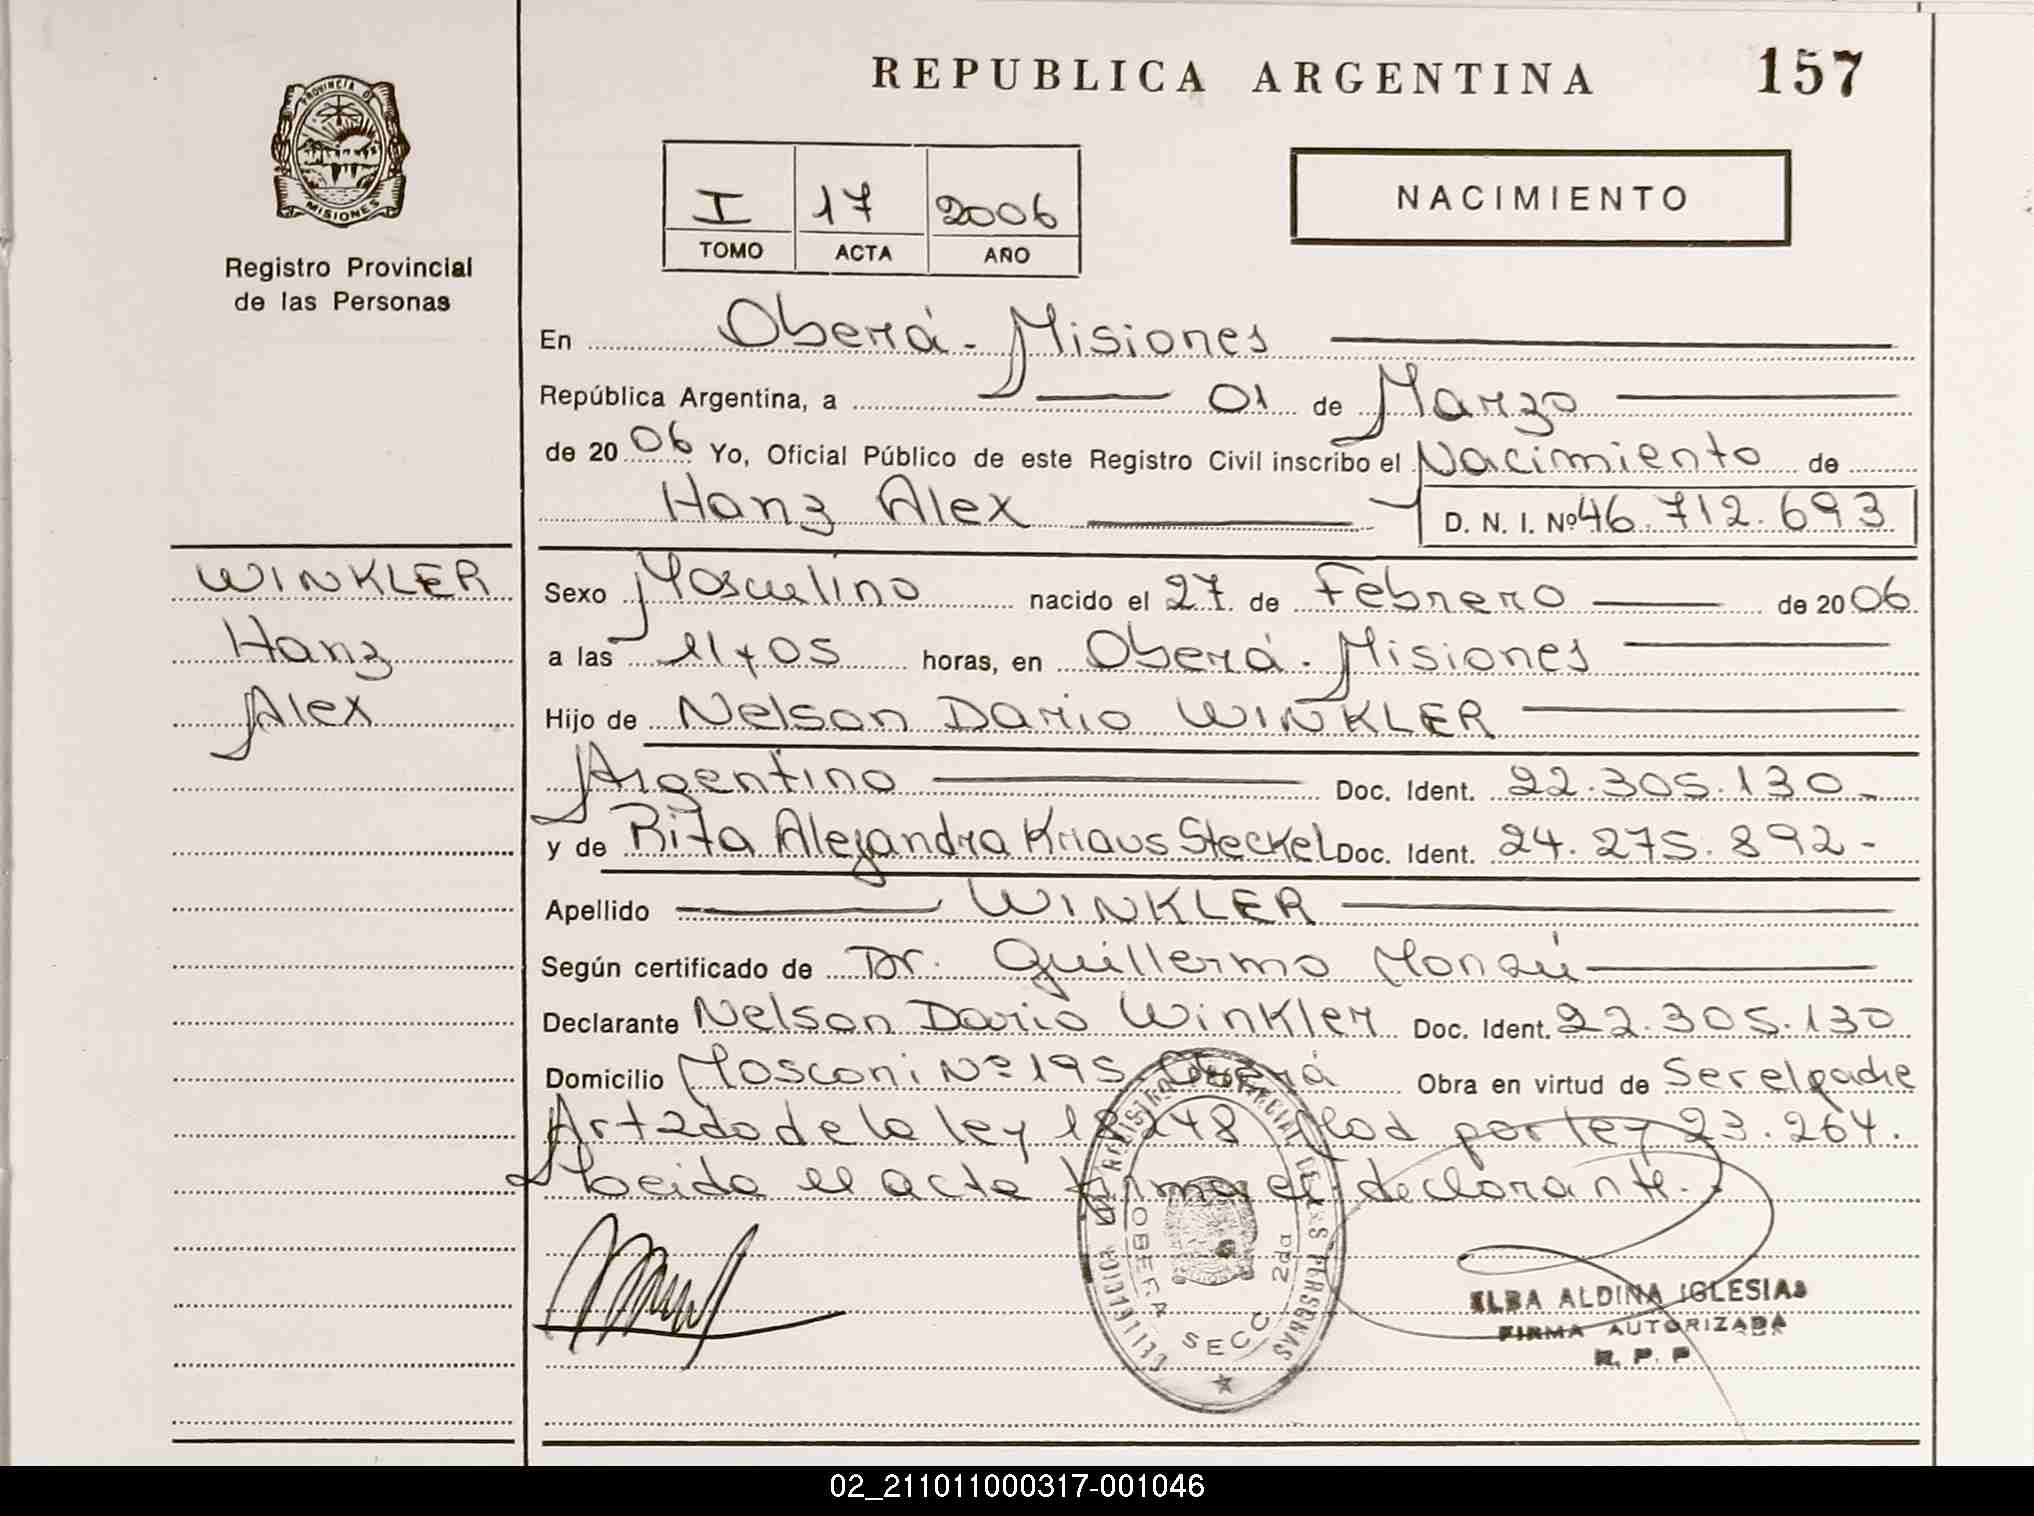 REPUBLICA ARGENTINA 157
PROVINCIA DE
MISIONES
Registro Provincial
de las Personas
I 17 2006
TOMO ACTA AÑO
NACIMIENTO
En Oberá - Misiones
República Argentina, a 01 de Marzo
de 2006 Yo, Oficial Público de este Registro Civil inscribo el Nacimiento de
Hanz Alex D. N. I. Nº 46.712.693
WINKLER
Hanz
Alex
Sexo Masculino nacido el 27 de Febrero de 2006
a las 11 y 05 horas, en Oberá - Misiones
Hijo de Nelson Dario WINKLER
Argentino Doc. Ident. 22.305.130 -
y de Rita Alejandra Kraus Steckel Doc. Ident. 24.275.892 -
Apellido WINKLER
Según certificado de Dr. Guillermo Monzú
Declarante Nelson Dario Winkler Doc. Ident. 22.305.130
Domicilio Mosconi Nº 195 Oberá Obra en virtud de Ser el padre
Art 2do de la ley 18248 Mod por ley 23.264.
Leida el acta firma el declarante.
REGISTRO PROVINCIAL DE LAS PERSONAS
OBERA SECC 2da
ELBA ALDINA IGLESIAS
FIRMA AUTORIZADA
R. P. P
02_211011000317-001046